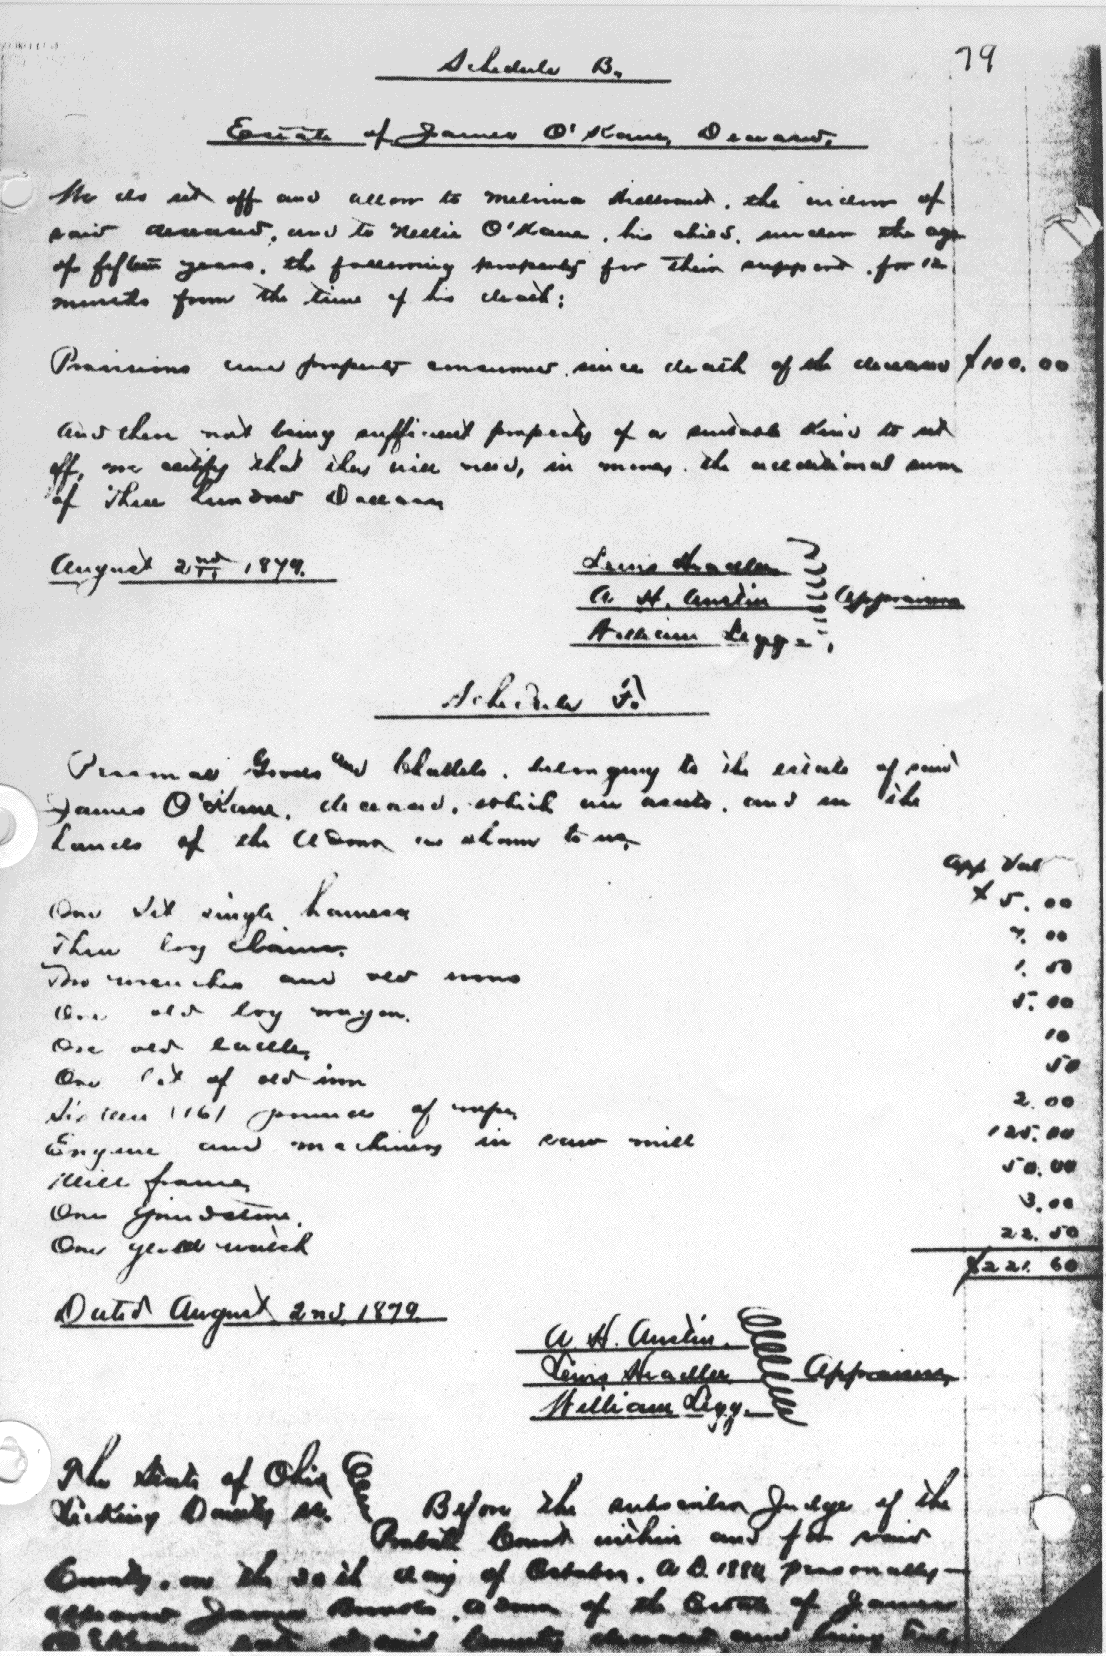 79
Schedule B.
Estate of James O'Kane, Deceased.
We do set off and allow to Melvina, the widow of
said deceased, and to Nellie O'Kane, his child, under the age
of fifteen years, the following property for their support for 12
months from the time of his death:
Provisions and property consumed since death of the deceased $100.00
And there not being sufficient property of a suitable kind to set
off, we certify that they will need, in money, the additional sum
of Three hundred Dollars
August 2nd 1879.
Lewis
A. H. Austin Appraisers
William Legge
Schedule F.
Personal Goods and Chattels, belonging to the estate of said
James O'Kane, deceased, which are assets, and in the
hands of the Admr as shown to us,
App Val
One set single harness $5.00
Three log chains. 7.00
Two wrenches and old irons 1.50
One old log wagon. 5.00
One old 10
One lot of old iron 50
Sixteen (16) pounds of rope 2.00
Engine and machinery in saw mill 125.00
Mill frame, 50.00
One grindstone. 3.00
One gold watch 22.50
$221.60
Dated August 2nd, 1879.
A. H. Austin.
Lewis Appraisers,
William Legge.
The State of Ohio
Licking County ss. Before the subscriber Judge of the
Probate Court within and for said
County, on the 20th day of October, A.D. 1880 personally
appeared James, admr of the Estate of James
O'Kane late of said County deceased and being duly